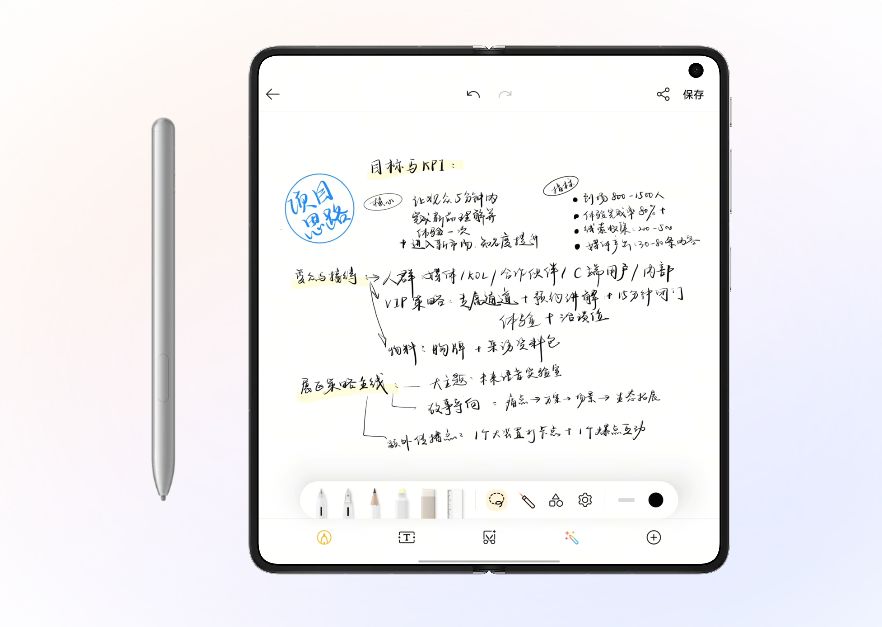 保存
目标与KPI：
项目
思路
核心
让观众5分钟内
完成新品理解并
体验一次
+ 进入新市场，知名度提升
指标
到场800-1500人
体验完成率80%+
线索收集：200-500
媒体产出：30-80条内容
受众与接待：→ 人群：媒体/KOL/合作伙伴/C端用户/内部
VIP策略：专属通道+预约讲解+15分钟闭门
体验+洽谈位
物料：胸牌+采访资料包
大主题：未来语言实验室
故事导向：痛点→方案→场景→生态拓展
额外传播点：1个大装置打卡点+1个爆点互动